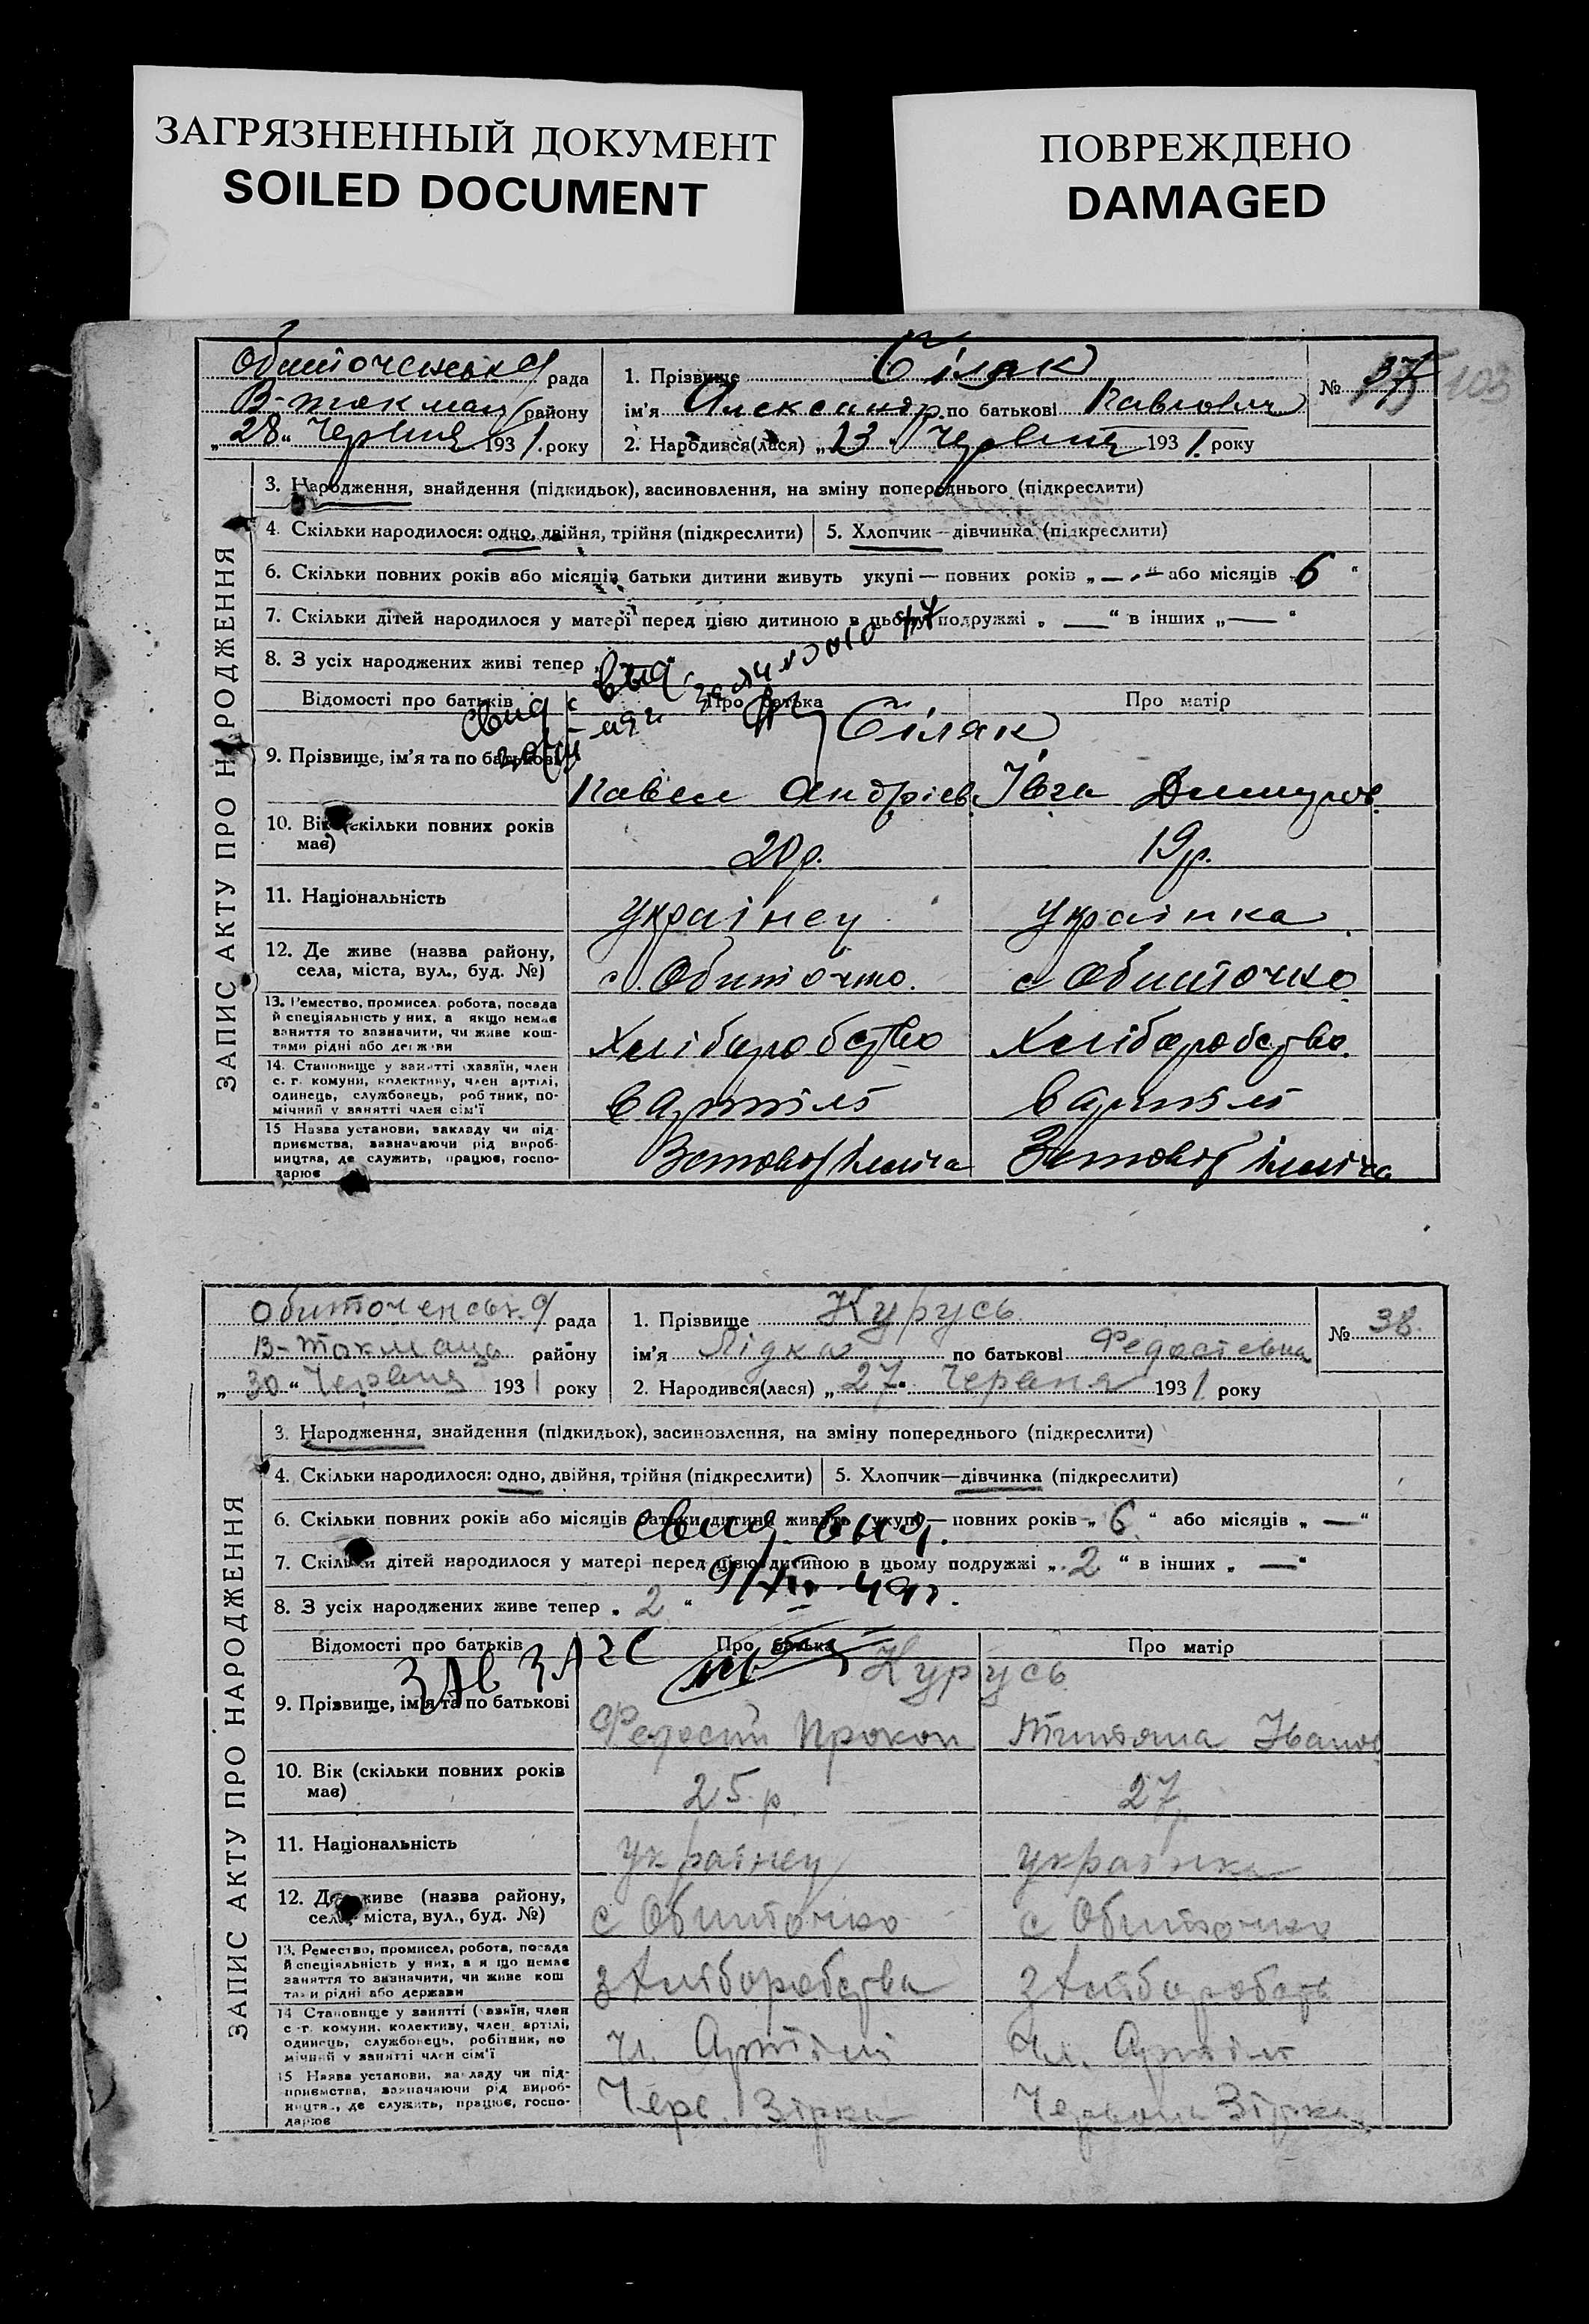 ЗАГРЯЗНЕННЫЙ ДОКУМЕНТ
SOILED DOCUMENT
ПОВРЕЖДЕНО
DAMAGED
103
Обиточенська рада
В-токмац району
„28“ Червня 1931. року
1. Прізвище Білак
ім'я Александр. по батькові Павлович
2. Народився(лася) „13“ Червня 1931. року
№ 37
ЗАПИС АКТУ ПРО НАРОДЖЕННЯ
3. Народження, знайдення (підкидьок), засиновлення, на зміну попереднього (підкреслити)
4. Скільки народилося: одно, двійня, трійня (підкреслити)
5. Хлопчик — дівчинка (підкреслити)
6. Скільки повних років або місяців батьки дитини живуть укупі — повних років „—“ або місяців „6“
7. Скільки дітей народилося у матері перед цією дитиною в цьому подружжі „—“ в інших „—“
8. З усіх народжених живі тепер
Відомості про батьків
Про батька
Про матір
9. Прізвище, ім'я та по батькові
Білак
Павел Андріев.
Івга Дмитров.
10. Вік (скільки повних років має)
20 р.
19 р.
11. Національність
українец
українка
12. Де живе (назва району, села, міста, вул., буд. №)
с. Обиточно.
с Обиточно
13. Ремество, промисел, робота, посада й спеціяльність у них, а якщо немає заняття то зазначити, чи живе коштами рідні або держави
Хліборобство
Хліборобство.
14. Становище у занятті (хазяїн, член с. г. комуни, колективу, член артілі, одинець, службовець, робітник, помічний у занятті член сім'ї
в артілі
в артілі
15 Назва установи, закладу чи підприємства, зазначаючи рід виробництва, де служить, працює, господарює
Заповіт Ілліча
Заповіт Ілліча
Обиточенськ. рада
В-Токмац району
„30“ Червня 1931 року
1. Прізвище Курусь
ім'я Лідка по батькові Федосіевна
2. Народився(лася) „27“ Червня 1931 року
№ 38.
ЗАПИС АКТУ ПРО НАРОДЖЕННЯ
3. Народження, знайдення (підкидьок), засиновлення, на зміну попереднього (підкреслити)
4. Скільки народилося: одно, двійня, трійня (підкреслити)
5. Хлопчик—дівчинка (підкреслити)
6. Скільки повних років або місяців батьки дитини живуть укупі — повних років „6“ або місяців „—“
свид. выд.
7. Скільки дітей народилося у матері перед цією дитиною в цьому подружжі „2“ в інших „—“
8. З усіх народжених живе тепер „2“
Відомості про батьків
Про батька
Про матір
Зав ЗАГС
9. Прізвище, ім'я та по батькові
Курусь
Федосій Прокоп
Титяна Іванов
10. Вік (скільки повних років має)
25 р.
27 р
11. Національність
українец
українка
12. Де живе (назва району, села, міста, вул., буд. №)
с Обиточно
с Обиточно
13. Ремество, промисел, робота, посада й спеціяльність у них, а якщо немає заняття то зазначити, чи живе коштами рідні або держави
з хліборобства
з хліборобств
14 Становище у занятті (хазяїн, член с.-г. комуни, колективу, член артілі, одинець, службовець, робітник, помічний у занятті член сім'ї
Чл. Артілі
Чл. Артілі
15 Назва установи, закладу чи підприємства, зазначаючи рід виробництва, де служить, працює, господарює
Черв. Зірка
Червона Зірка.